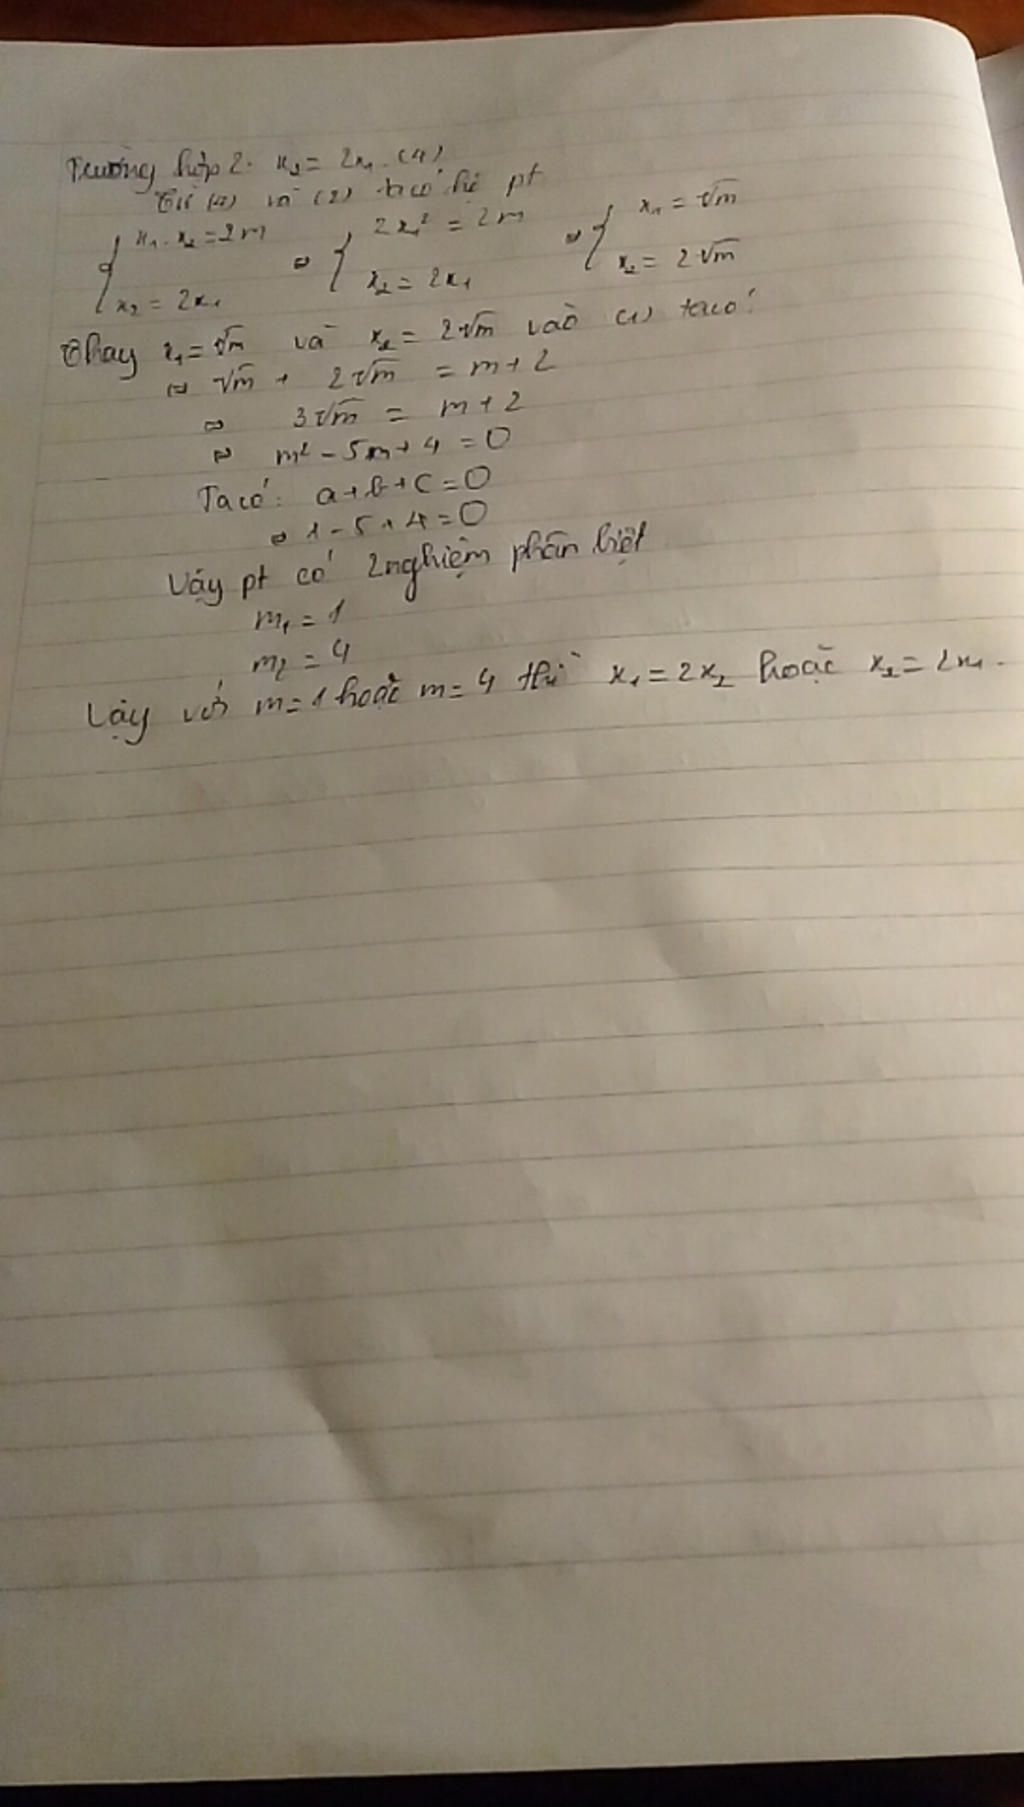 Trường hợp 2. x₂ = 2x₁. (4)
Từ (4) và (2) ta có hệ pt
{ x₁. x₂ = 2m ⇔ { 2x₁² = 2m ⇔ { x₁ = √m
x₂ = 2x₁ x₂ = 2x₁ x₂ = 2√m
Thay x₁ = √m và x₂ = 2√m vào (1) ta có:
⇔ √m + 2√m = m + 2
⇔ 3√m = m + 2
⇔ m² - 5m + 4 = 0
Ta có: a + b + c = 0
⇔ 1 - 5 + 4 = 0
Vậy pt có 2 nghiệm phân biệt
m₁ = 1
m₂ = 4
Vậy với m = 1 hoặc m = 4 thì x₁ = 2x₂ hoặc x₂ = 2x₁.